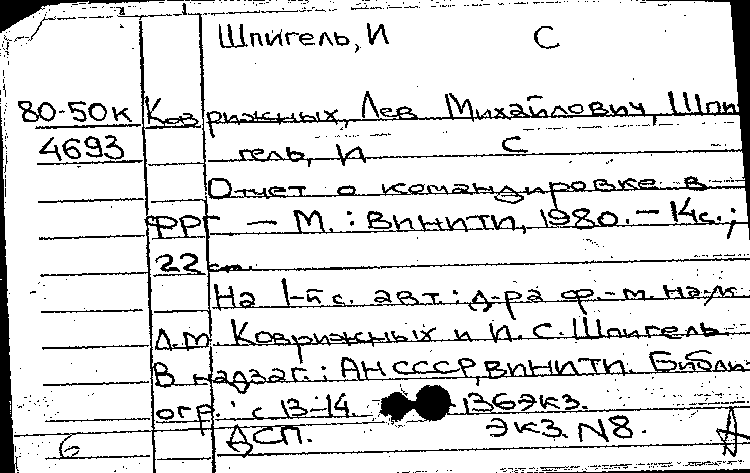 Шпигель, И С
80-50к Коврижных, Лев Михайлович, Шпи
4693 гель, И С
Отчет о командировке в
ФРГ — М.: ВИНИТИ, 1980. — 14с.;
22 см.
На 1-й с. авт.: д-ра ф.-м. наук
Л.М. Коврижных и И.С. Шпигель
В надзаг.: АН СССР, ВИНИТИ. Библи-
огр.: с 13-14. 136 экз.
6 ДСП. экз. N8.